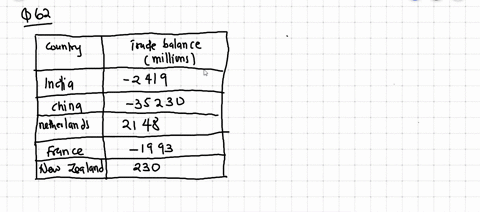 Q62
Country Trade balance
(millions)
India -2419
china -35230
netherlands 2148
France -1993
New Zealand 230